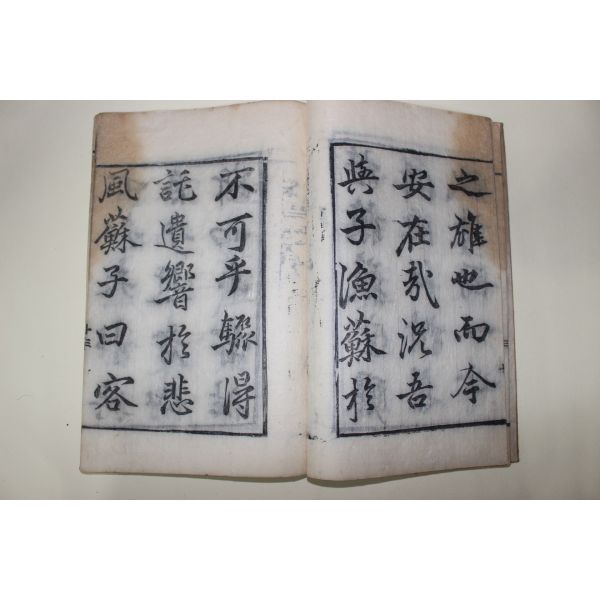 之雄也而今
安在哉況吾
與子漁蘇於
不可乎驟得
託遺響於悲
風蘇子曰客